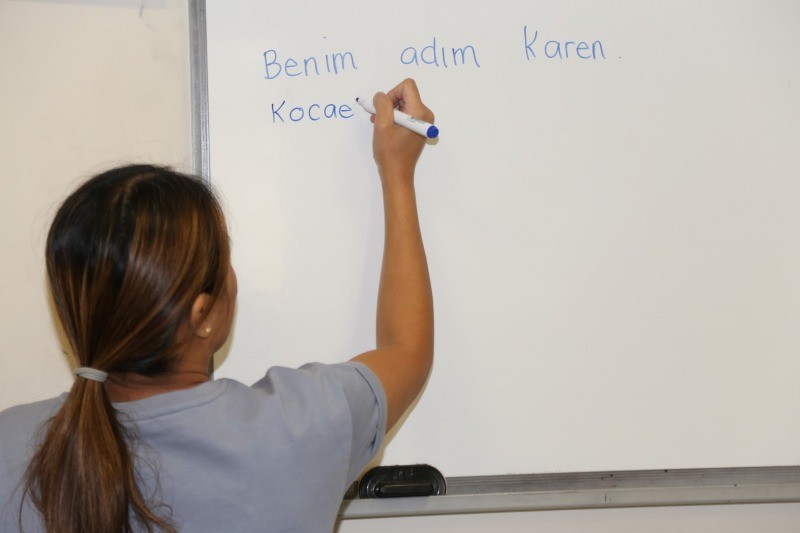 Benim adım Karen.
Kocae